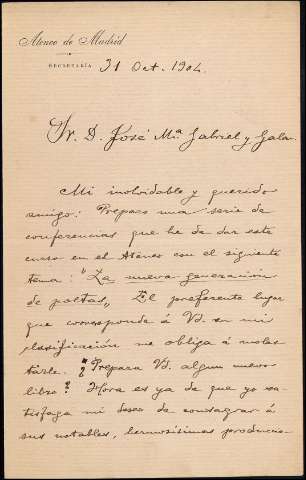 Ateneo de Madrid
SECRETARÍA
31 Oct. 1904.
Sr. D. José Mª Gabriel y Galan
Mi inolvidable y querido
amigo: Preparo una serie de
conferencias que he de dar este
curso en el Ateneo con el siguiente
tema: "La nueva generación
de poetas„ El preferente lugar
que corresponde á Vd. en mi
clasificación me obliga á moles
tarle. ¿Prepara Vd. algun nuevo
libro? Hora es ya de que yo sa-
tisfaga mi deseo de consagrar á
sus notables, hermosísimas produccio-